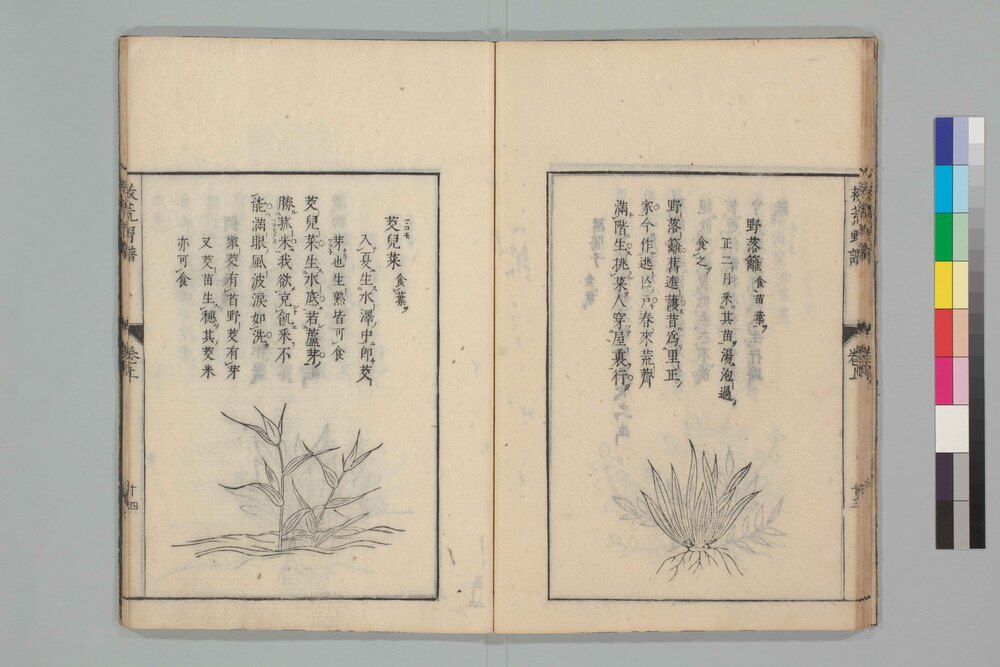 救荒野譜
卷上
十三
野落籬 食苗葉
正二月采其苗湯泡過
食之
野落籬舊遮護昔為里正
家今作逃亾戸春來荒薺
滿階生挑菜人穿屋裏行
茭兒菜 食葉
入夏生水澤中即茭
芽也生熟皆可食
茭兒菜生水底若蘆芽
勝菰米我欲充飢采不
能滿眼風波淚如洗
家茭有首野茭有芽
又茭苗生穗其茭米
亦可食
救荒野譜
卷上
十四